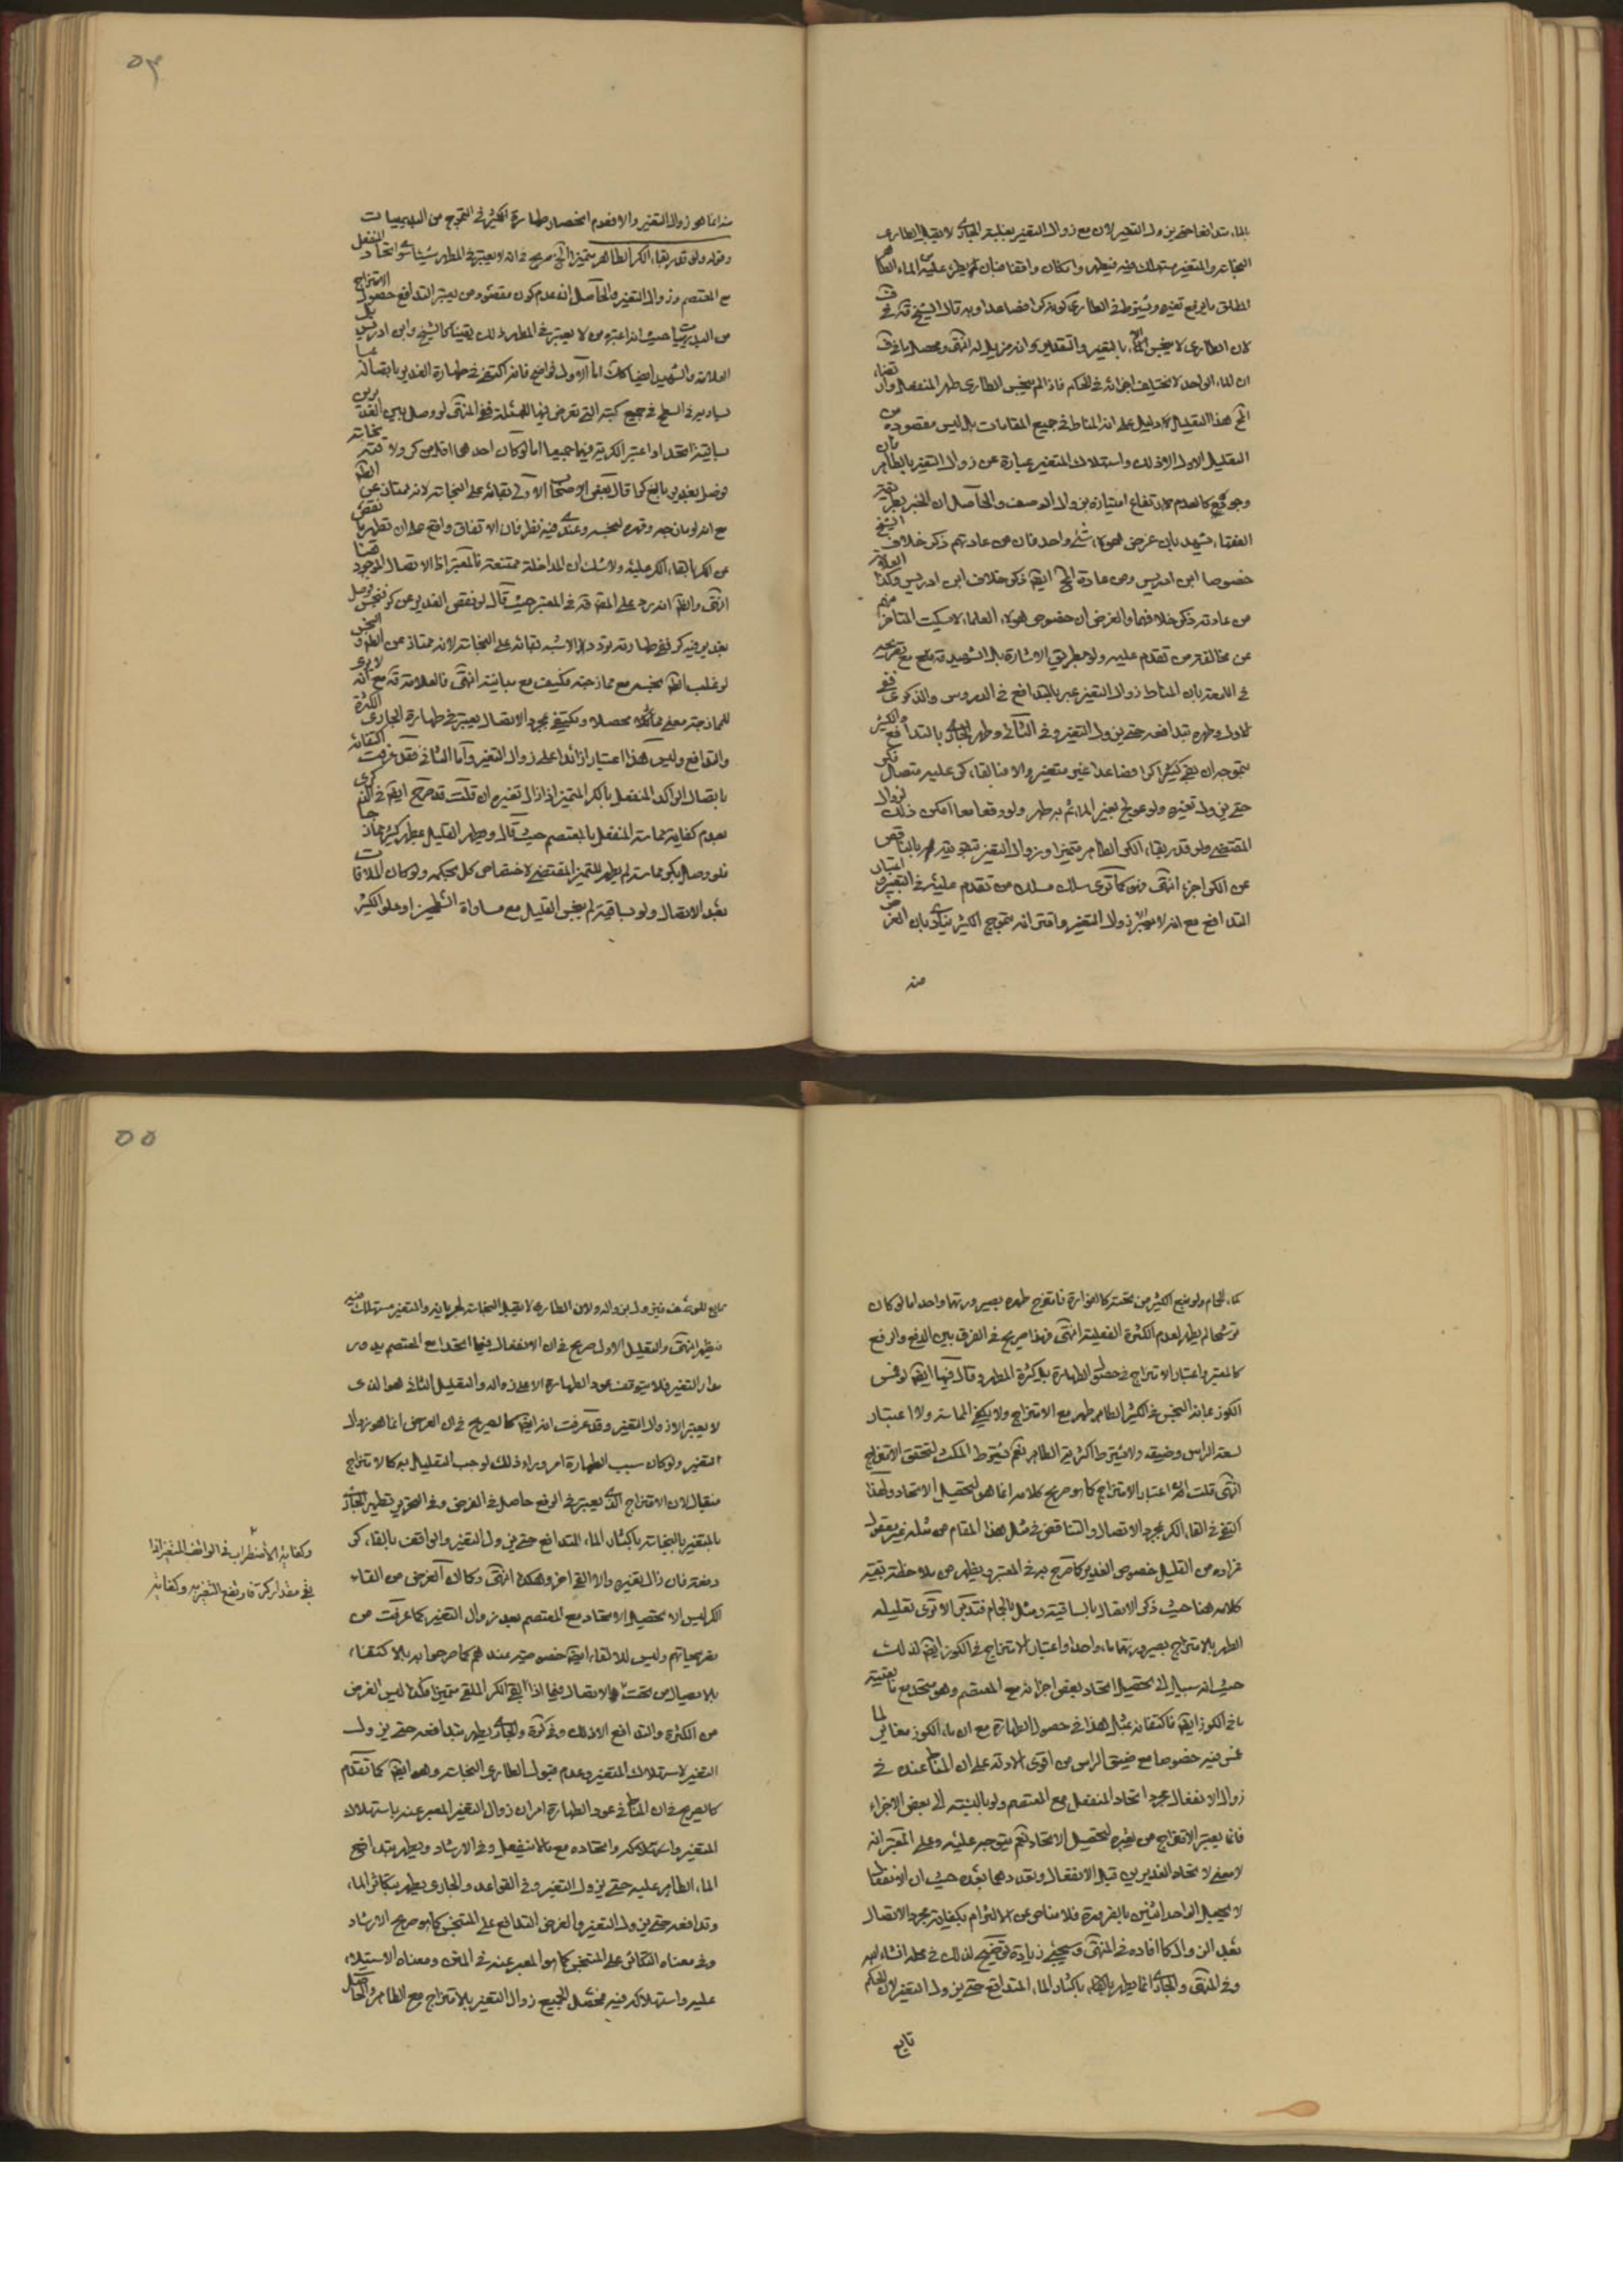 بالماء تدافعا حتى يزول التغير لان مع زوال التغير بغلبة الجارى لا يقبل الطارى
النجاسة والمتغير مستهلك فيه فيطهر وان كان واقفا فبان يطرء عليه من الماء الطاهر
المطلق ما يرفع تغيره ويشترط في الطارى كونه كرا فصاعدا وبه قال الشيخ قده في ف
لان الطارى لا ينجس بالتغير والتقدير انه مزيل له انتهى ومحصل ما في ف
ان الماء الواحد لا تختلف اجزائه في الحكم فاذا لم ينجس الطارى طهر المنفعل
هذا التعليل لا دليل على ان المناط في جميع المقامات بل ليس مقصوده من
التعليل الاول الا ذلك واستهلاك المتغير عبارة عن زوال التغير بالطاهر
كالعدم لارتفاع امتيازه بزوال الوصف والحاصل ان الخبير بطريقة
الفقهاء يشهد بان غرض هؤلاء شئ واحد فان من عادتهم ذكر خلاف الشيخ
خصوصا ابن ادريس ومن عادة ايضا ذكر خلاف ابن ادريس وكذا العلامة
من عادته ذكر خلافهما والغرض ان خصوص هؤلاء العلماء لا يسكت المتاخر منهم
عن مخالفة من تقدم عليه ولو بطريق الاشارة بل الشهيد قده مع تصريحه
في اللمعة بان المناط زوال التغير عبر بالتدافع في الدروس والذكرى ففي
الاول وطهره بتدافعه حتى يزول التغير وفي الثانى وطهر الجارى بالتدافع والكثير
بتموجه ان بقى كثيرا كرا فصاعدا غير متغير والا فبالقاء كر عليه متصل فكر
حتى يزول تغيره ولو عولج بغير الماء ثم يطهر ولو وقعا معا امكن ذلك لزوال
المقتضى ولو قدر بقاء الكر الطاهر متميزا وزوال التغير بتقويته بالناقص
عن الكر اجزء انتهى وهو كما ترى سلك مسلك من تقدم عليه في التعبير باعتبار
التدافع مع انه لا يعتبر الا زوال التغير واقترانه بتموج الكثير ينادى بان الغرض
منه
٥٤
منه انما هو زوال التغير والا فعدم انحصار طهارة الكثير في التموج من البديهيات
وقوله ولو قدر بقاء الكر الطاهر متميزا الخ صريح في انه لا يعتبر في المطهر شيئا سوى اتحاد المنفعل
مع المعتصم وزوال التغير والحاصل انه عدم كون مقصود من يعتبر التدافع حصول الامتزاج
من البديهيات حيث انه اعتبره من لا يعتبر في المطهر ذلك يقينا كالشيخ وابن ادريس بل
العلامة والشهيد ايضا كذلك اما الاول فواضح فانه اكتفى في طهارة الغدير باتصاله بما
يساويه في السطح في جميع كتبه التى تعرض فيها للمسئلة ففي المنتهى لو وصل بين الغديرين
بساقية اتحدا واعتبر الكرية فيهما جميعا اما لو كان احدهما اقل من كر ولاقته نجاسة
فوصل بغدير بالغ كرا قال بعض الاصحاب الاولى بقائه على النجاسة لانه ممتاز عن الطاهر
مع انه لو مازجه وقهره لنجسه وعندى فيه نظر فان الاتفاق واقع على ان تطهير ما نقص
عن الكر بالقاء الكر عليه ولا شك ان المداخلة ممتنعة فالمعتبر اذا الاتصال الموجود هنا
انتهى والظاهر انه يرد على المحقق قده في المعتبر حيث قال لو نقص الغدير عن كر فنجس فوصل
بغدير فيه كر ففي طهارته تردد والاشبه بقائه على النجاسة لانه ممتاز عن الطاهر والنجس
لو غلب الطاهر نجسه مع ممازجته فكيف مع مباينته انتهى فالعلامة قده مع انه لا يرى
للممازجة معنى محصلا ويكتفى بمجرد الاتصال يعتبر في طهارة الجارى الكثرة
والتدافع وليس هذا اعتبارا زائدا على زوال التغير واما الثانى فقد عرفت اكتفائه
باتصال الراكد المنفعل بالكر المتميز اذا زال تغيره ان قلت قد صرح ايضا في الذكرى
بعدم كفاية مماسة المنفعل بالمعتصم حيث قال ويطهر القليل بمطهر الكثير ممازجا
فلو وصل بكر مماسة لم يطهر للتميز المقتضى لاختصاص كل بحكمه ولو كان الملاقاة
بعد الاتصال ولو بساقية لم ينجس القليل مع مساواة السطحين او علو الكثير
كماء الحمام ولو نبع الكثير من تحته كالفوارة فامتزج طهره بصيرورتهما واحدا اما لو كان
ترشحا لم يطهر لعدم الكثرة الفعلية انتهى فهذا صريح في الفرق بين الدفع والرفع
كالمعتبر واعتبار الامتزاج في حصول الطهارة بل كثرة المطهر وقال فيها ايضا لو غمس
الكوز بمائه النجس في الكثير الطاهر طهر مع الامتزاج ولا يكفى المماسة ولا اعتبار
لسعة الراس وضيقه ولا يشترط اكثرية الطاهر نعم يشترط المكث لتحقق الامتزاج
انتهى قلت اعتبار الامتزاج كما هو صريح كلامه انما هو لتحصيل الاتحاد ولهذا
اكتفى في القاء الكر بمجرد الاتصال والتناقض في مثل هذا المقام من مثله غير معقول
فمراده من القليل خصوص الغدير كما صرح به في المعتبر ويظهر من ملاحظة بقية
كلامه هنا حيث ذكر الاتصال بالساقية ومثل بالحمام فتدبر الا ترى تعليله
الطهر بالامتزاج بصيرورتهما ماء واحدا واعتبار الامتزاج في الكوز ايضا لذلك
حيث انه سبيل الى تحصيل اتحاد بعض اجزائه مع المعتصم وهو متحد مع بقية
ما في الكوز ايضا فاكتفائه بمثل هذا في حصول الطهارة مع ان ماء الكوز مغاير لما
غمس فيه خصوصا مع ضيق الراس من اقوى الادلة على ان المناط عنده في
زوال الانفعال مجرد اتحاد المنفعل مع المعتصم ولو بالنسبة الى بعض الاجزاء
فانما يعتبر الامتزاج من يعتبره لتحصيل الاتحاد نعم يتوجه عليه وعلى المعتبر انه
لا معنى لاتحاد الغديرين قبل الانفعال وتعددهما بعده حيث ان الانفعال
لا يجعل الواحد اثنين بالضرورة فلا مناص عن الالتزام بكفاية مجرد الاتصال
بعد الزوال كما افاده في المنتهى وسيجئ زيادة توضيح لذلك في محله انشاء الله
وفي المنتهى والجارى انما يطهر باكثار الماء المتدافع حتى يزول التغير لان الحكم
تابع
٥٥
تابع للوصف فيزول بزواله ولان الطارى لا يقبل النجاسة لجريانه والمتغير مستهلك فيه
فيطهر انتهى والتعليل الاول صريح في ان الانفعال فيما اتحد مع المعتصم يدور
مدار التغير فلا يتوقف عود الطهارة الا على زواله والتعليل الثانى هو الذى
لا يعتبر الا زوال التغير وقد عرفت انه ايضا كالصريح في ان الغرض انما هو زوال
التغير ولو كان سبب الطهارة امر وراء ذلك لوجب التعليل به كالامتزاج
فيقال لان الامتزاج الذى يعتبر في الرفع حاصل في الفرض وفي التحرير تطهير الجارى
المتغير بالنجاسة باكثار الماء المتدافع حتى يزول التغير والواقف بالقاء كر
دفعة فان زال تغيره والا القى اخر وهكذا انتهى وكما ان الغرض من القاء
الكر ليس الا تحصيل الاتحاد مع المعتصم بعد زوال التغير كما عرفت من
تصريحاتهم وليس للالقاء ايضا خصوصية عندهم كما صرحوا به بالاكتفاء
بالايصال من تحت والاتصال فيما اذا القى الكر الملقى متميزا فكذا ليس الغرض
من الكثرة والتدافع الا ذلك وفي كرة والجارى يطهر بتدافعه حتى يزول
التغير لاستهلاك المتغير وعدم قبول الطارى النجاسة وهو ايضا كما تقدم
كالصريح في ان المناط في عود الطهارة امران زوال التغير المعبر عنه باستهلاك
المتغير واستهلاكه واتحاده مع ما لا ينفعل وفي الارشاد ويطهر بتدافع
الماء الطاهر عليه حتى يزول التغير وفي القواعد والجارى يطهر بتكاثر الماء
وتدافعه حتى يزول التغير والغرض التدافع على المتنجس كما هو صريح الارشاد
وفي معناه التكاثر على المتنجس كما هو المعبر عنه في المتن ومعناه الاستيلاء
عليه واستهلاكه فيه فمحصل الجميع زوال التغير بالامتزاج مع الطاهر والحاصل
وكفاية الاضطراب في الواقف المتغير اذا
بقى مقدار كرة فارتفع التغير به وكفاية